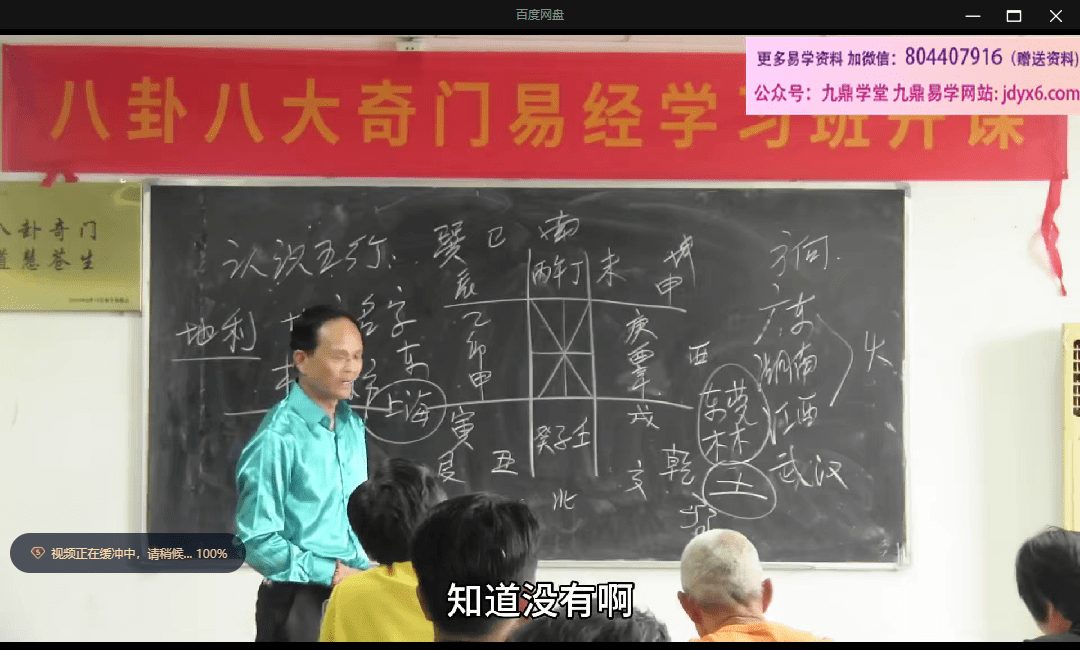 百度网盘
更多易学资料 加微信：804407916（赠送资料)
公众号：九鼎学堂 九鼎易学网站: jdyx6.com
八卦八大奇门易经学习班开课
八卦奇门
道慧苍生
认识五行：
巽 巳 南
方向.
辰
丙午丁
未
申
地利
名字
乙
卯
甲
庚
酉
辛
西
广东
湖南
江西
武汉
火
东
上海
东莞
林
土
寅
艮
丑
癸子壬
戌
亥
乾
北
视频正在缓冲中，请稍候... 100%
知道没有啊